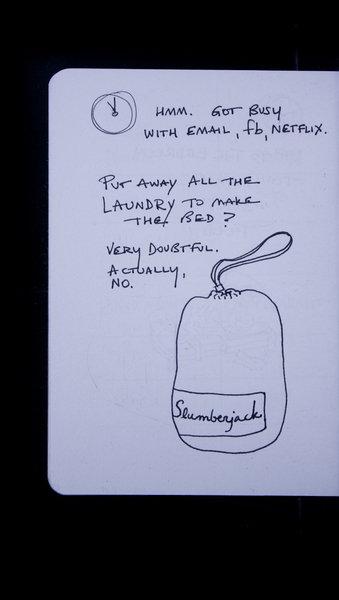 HMM. GOT BUSY
WITH EMAIL, fb, NETFLIX.
PUT AWAY ALL THE
LAUNDRY TO MAKE
THE BED?
VERY DOUBTFUL.
ACTUALLY,
NO.
Slumberjack